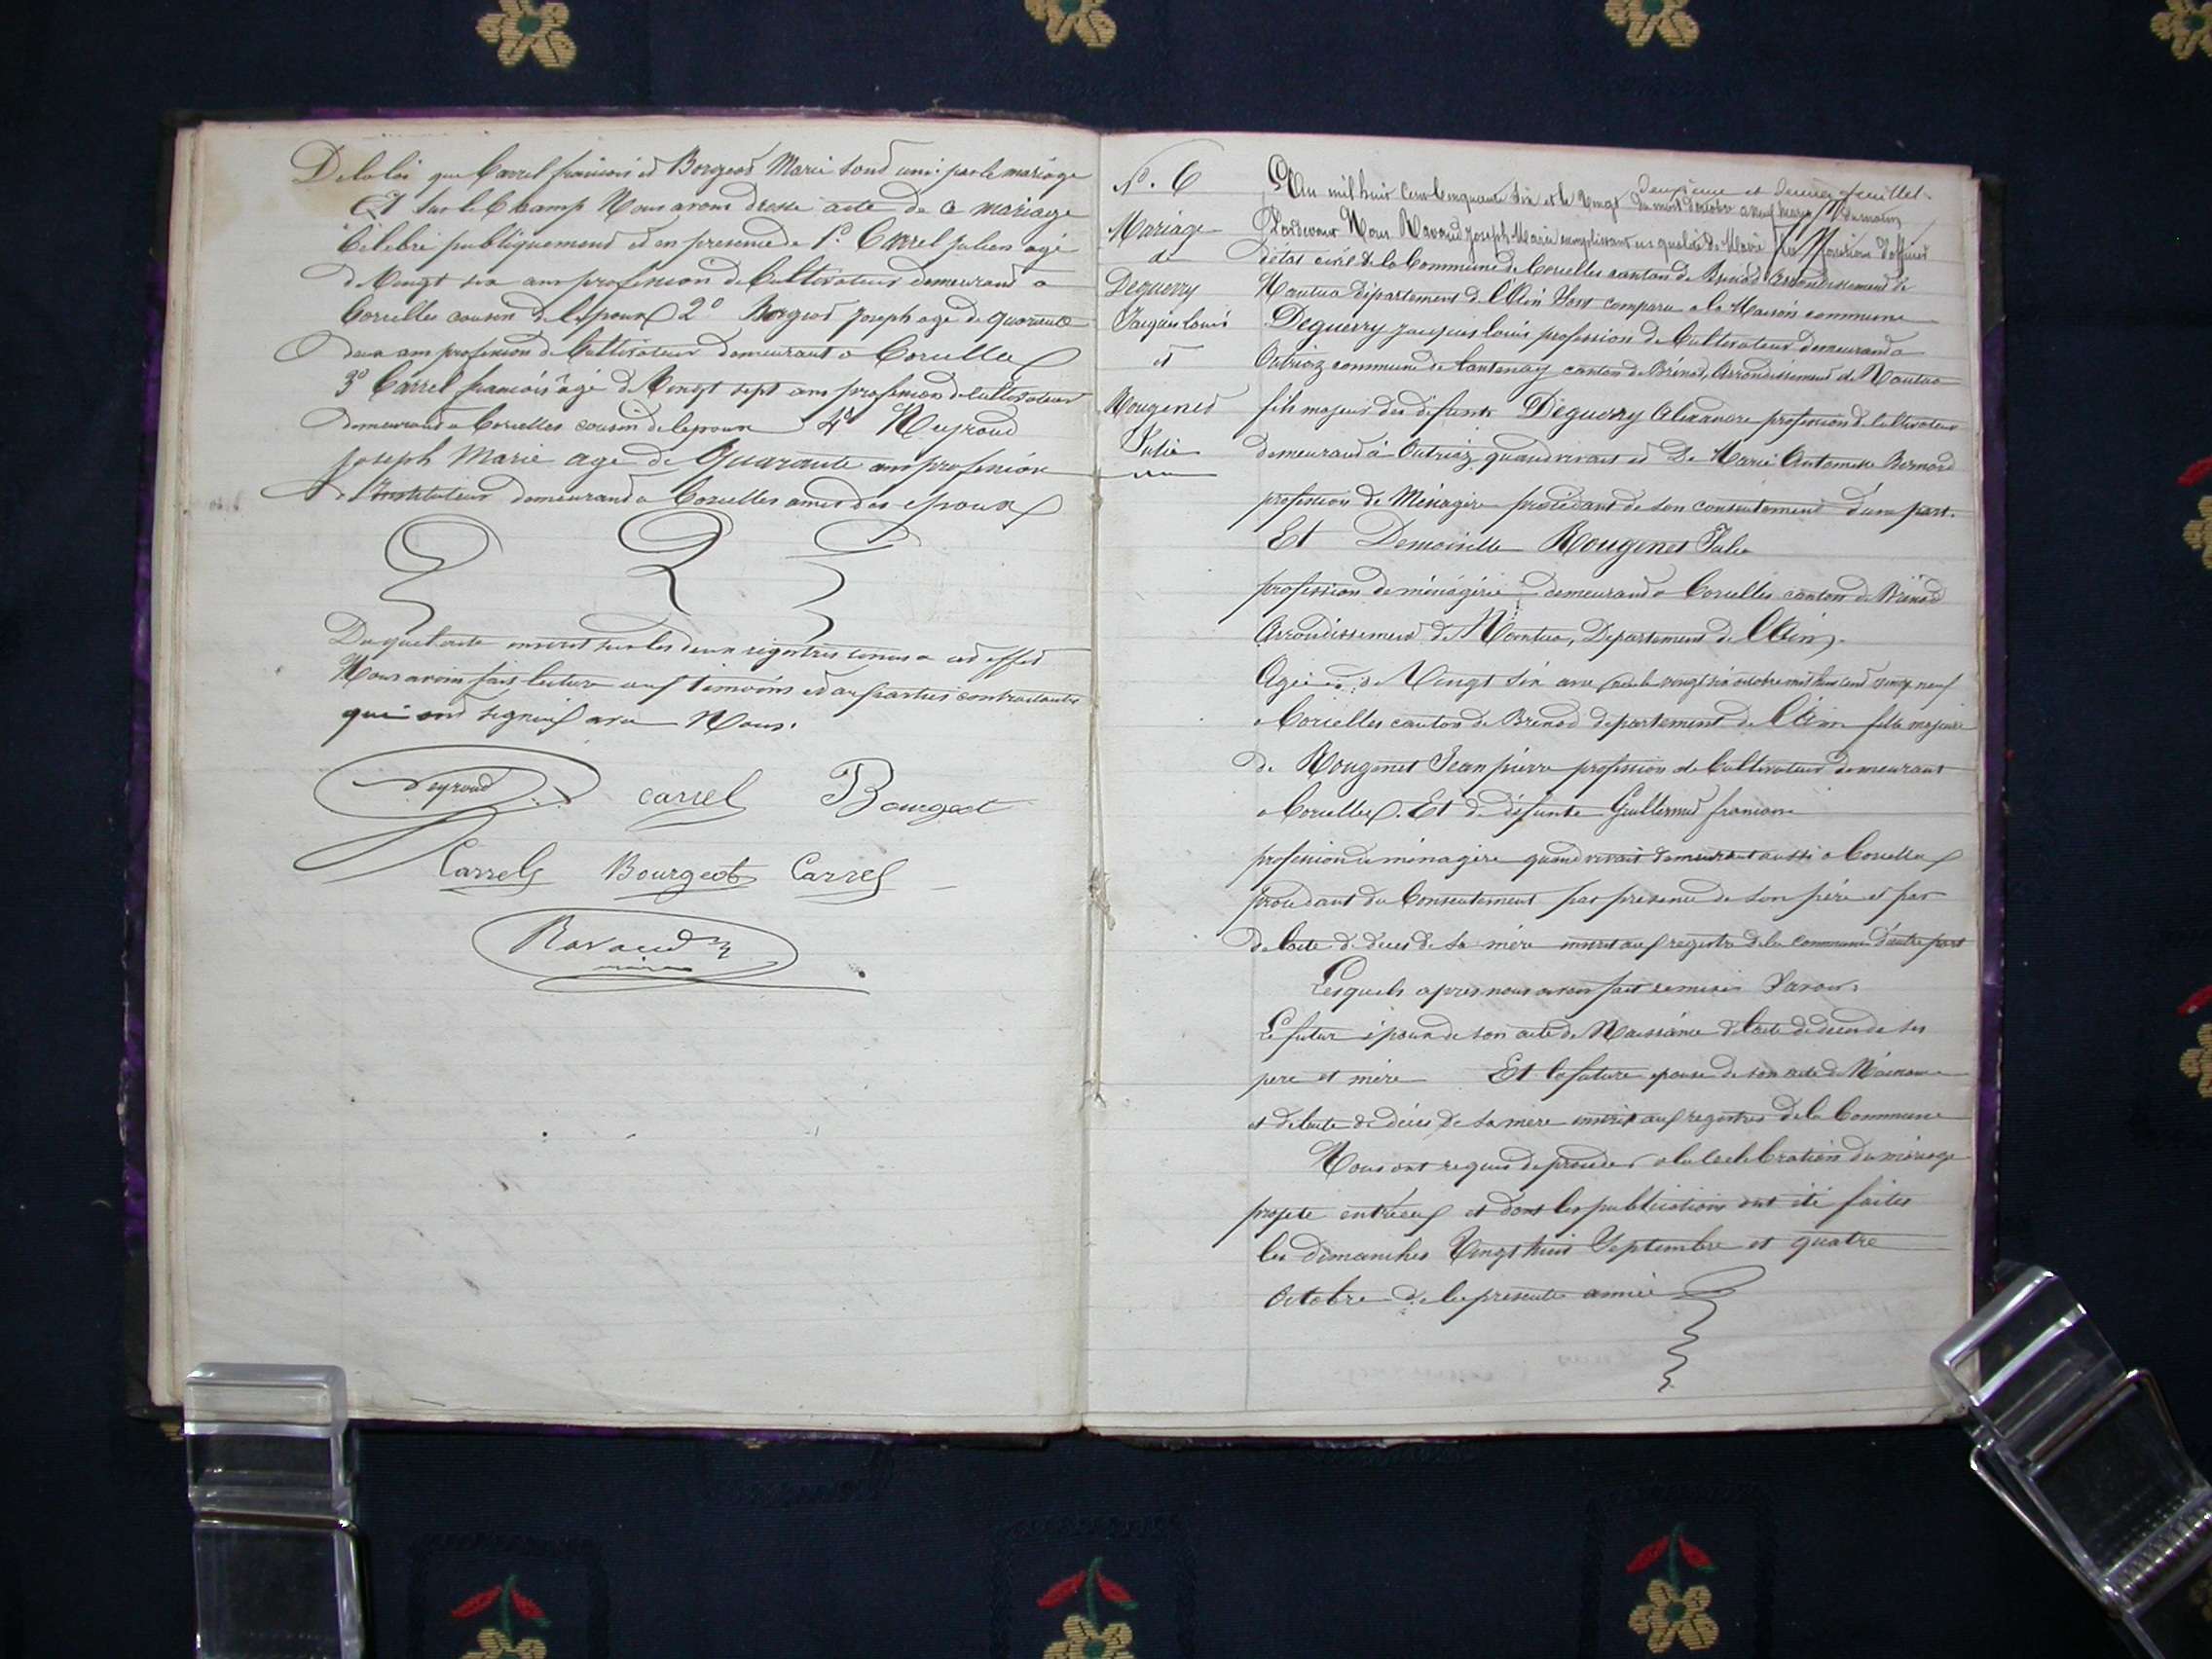 De la loi que Carrel francois et Borgeod Marie sont unis par le mariage
Et sur le Champ Nous avons dressé acte de ce mariage
Célébré publiquement et en présence de 1º. Carrel julien agé
de Vingt six ans profession de Cultivateur demeurand a
Corcelles cousin de l'epoux 2º Borgeod joseph age de quarante
deux ans profession de Cultivateur demeurant a Corcelles
3º Carrel francois âgé de Vingt sept ans profession de cultivateur
demeurand a Corcelles cousin de lepoux 4º Neyroud
joseph Marie age de Quarante ans profession
d'Instituteur demeurand a Corcelles amis des epoux
Du quel acte inscrit sur les deux régistres tenus a cet effet
Nous avons fait lecture aux témoins et aux parties contractantes
qui ont signés avec Nous.
Neyroud carrel Bourgeot
Carrel Bourgeot Carrel
Ravaud
maire
Nº. 6
Mariage
de
Deguerry
Jacques louis
et
Rougemet
Julie
deuxieme et dernier feuillet.
L'An mil huit Cent Cinquante six et le Vingt du mois d'octobre a neuf heures du matin
Pardevant Nous Ravaud Joseph Marie remplissant en qualité de Maire les fonctions d'officier
d'état civil de la Commune de Corcelles canton de Brénod Arrondissement de
Nantua département de l'Ain Sont comparu a la Maison commune
Deguerry jacques louis profession de Cultivateur demeurand a
Outriaz commune de lantenay canton de Brénod, Arrondissement de Nantua
fils majeur des défunts Deguerry Alexandre profession de Cultivateur
demeurand à Outriaz quand vivait et De Marie Antoinette Bernard
profession de Ménagère procédant de son consentement d'une part.
Et Demoiselle Rougemet Julie
profession de ménagère demeurand a Corcelles canton de Brénod
Arrondissement de Nantua, Departement de l'Ain.
Agée de Vingt six ans née le vingt six octobre mil huit cent vingt neuf
a Corcelles canton de Brénod departement de l'Ain fille majeure
de Rougemet Jean pierre profession de Cultivateur demeurant
a Corcelles. Et de défunte Guillermet francoise
profession de ménagère quand vivait demeurant aussi a Corcelles
procédant du Consentement par présence de son père et par
de l'acte de décès de sa mère inscrit aux registre de la commune d'autre part
Lesquels apres nous avoir fait remise Savoir:
Le futur époux de son acte de Naissance de l'acte de décès de ses
pere et mère Et la future epouse de son acte de Naissance
et de l'acte de décès de sa mere inscrit aux registres de la Commune
Nous ont requis de procéder a la célébration du mariage
projeté entr'eux et dont les publications ont été faites
les dimanches Vingt huit Septembre et quatre
Octobre de la présente année